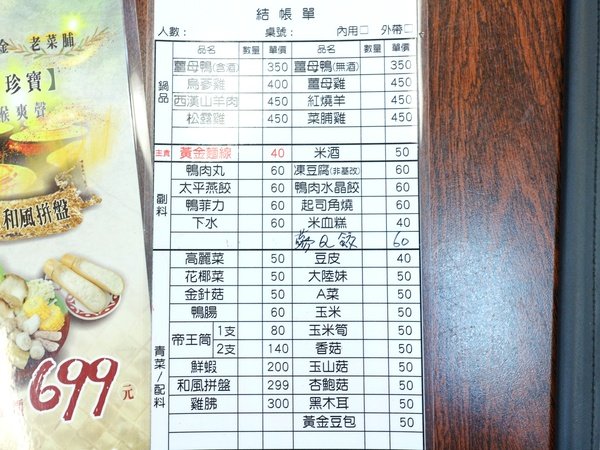 金 老菜脯
珍寶】
喉爽聲
和風拼盤
699元
結帳單
人數： 桌號： 內用□ 外帶□
品名 數量 單價 品名 數量 單價
鍋品
薑母鴨(含酒) 350 薑母鴨(無酒) 350
烏蔘雞 400 薑母雞 450
西漢山羊肉 450 紅燒羊 450
松露雞 450 菜脯雞 450
主食 黃金麵線 40 米酒 50
副料
鴨肉丸 60 凍豆腐(非基改) 60
太平燕餃 60 鴨肉水晶餃 60
鴨菲力 60 起司角燒 60
下水 60 米血糕 40
Q餃 60
青菜/配料
高麗菜 50 豆皮 40
花椰菜 50 大陸妹 50
金針菇 50 A菜 50
鴨腸 60 玉米 50
帝王筒 1支 80 玉米筍 50
2支 140 香菇 50
鮮蝦 200 玉山菇 50
和風拼盤 299 杏鮑菇 50
雞胇 300 黑木耳 50
黃金豆包 50